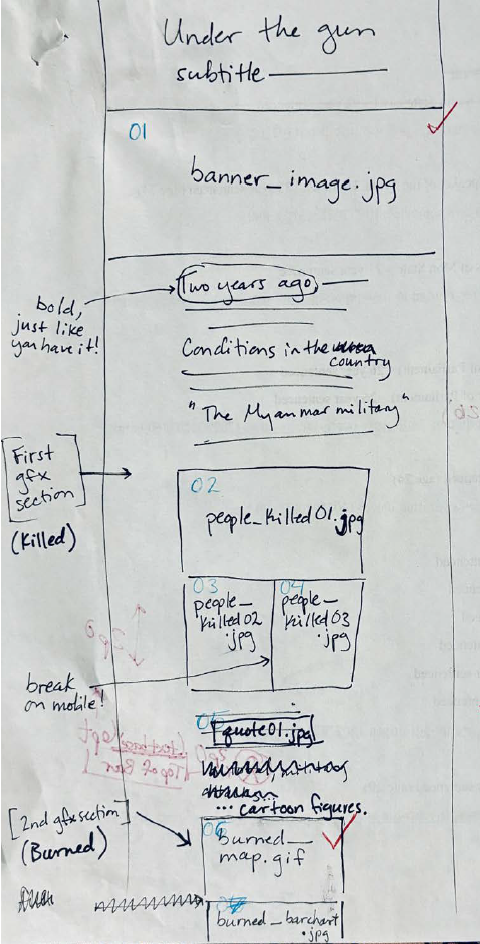 Under the gun
subtitle
01
banner_image.jpg
Two years ago,
bold,
just like
you have it!
Conditions in the
country
"The Myanmar military"
[First
gfx
section]
(Killed)
02
people_killed01.jpg
03
people_
killed02
.jpg
04
people_
killed03
.jpg
break
on mobile!
05
quote01.jpg
... cartoon figures.
[2nd gfx section]
(Burned)
06
burned_
map.gif
burned_barchart
.jpg